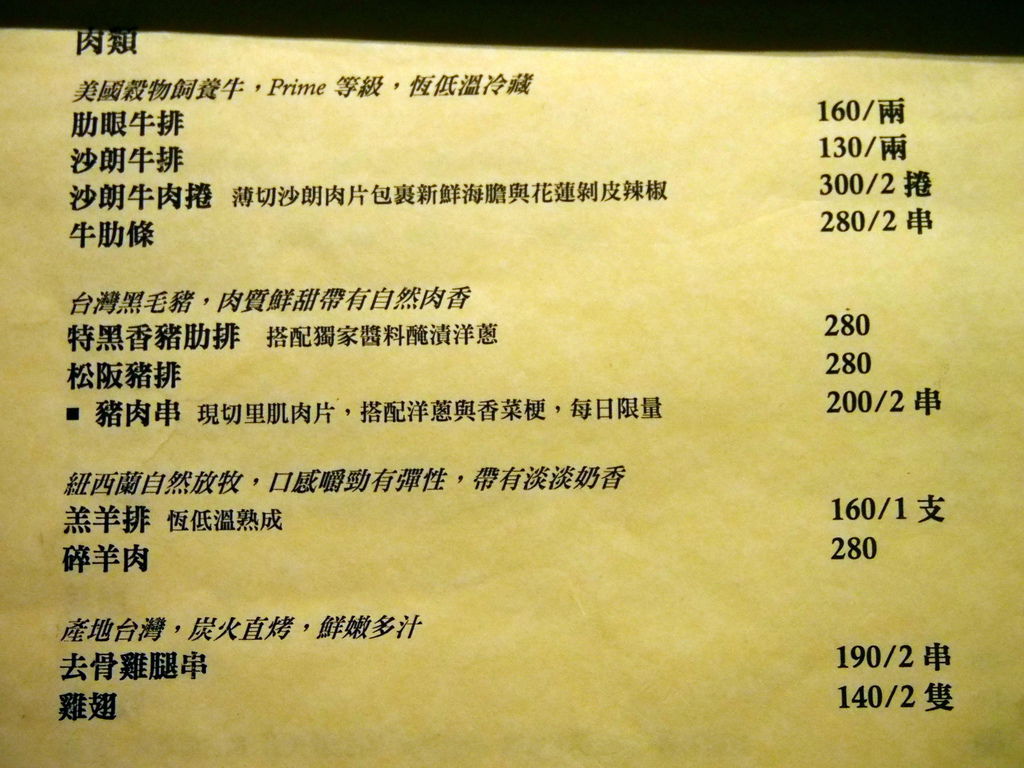 肉類
美國穀物飼養牛，Prime 等級，恆低溫冷藏
肋眼牛排 160/兩
沙朗牛排 130/兩
沙朗牛肉捲 薄切沙朗肉片包裹新鮮海膽與花蓮剝皮辣椒 300/2 捲
牛肋條 280/2 串
台灣黑毛豬，肉質鮮甜帶有自然肉香
特黑香豬肋排 搭配獨家醬料醃漬洋蔥 280
松阪豬排 280
■ 豬肉串 現切里肌肉片，搭配洋蔥與香菜梗，每日限量 200/2 串
紐西蘭自然放牧，口感嚼勁有彈性，帶有淡淡奶香
羔羊排 恆低溫熟成 160/1 支
碎羊肉 280
產地台灣，炭火直烤，鮮嫩多汁
去骨雞腿串 190/2 串
雞翅 140/2 隻